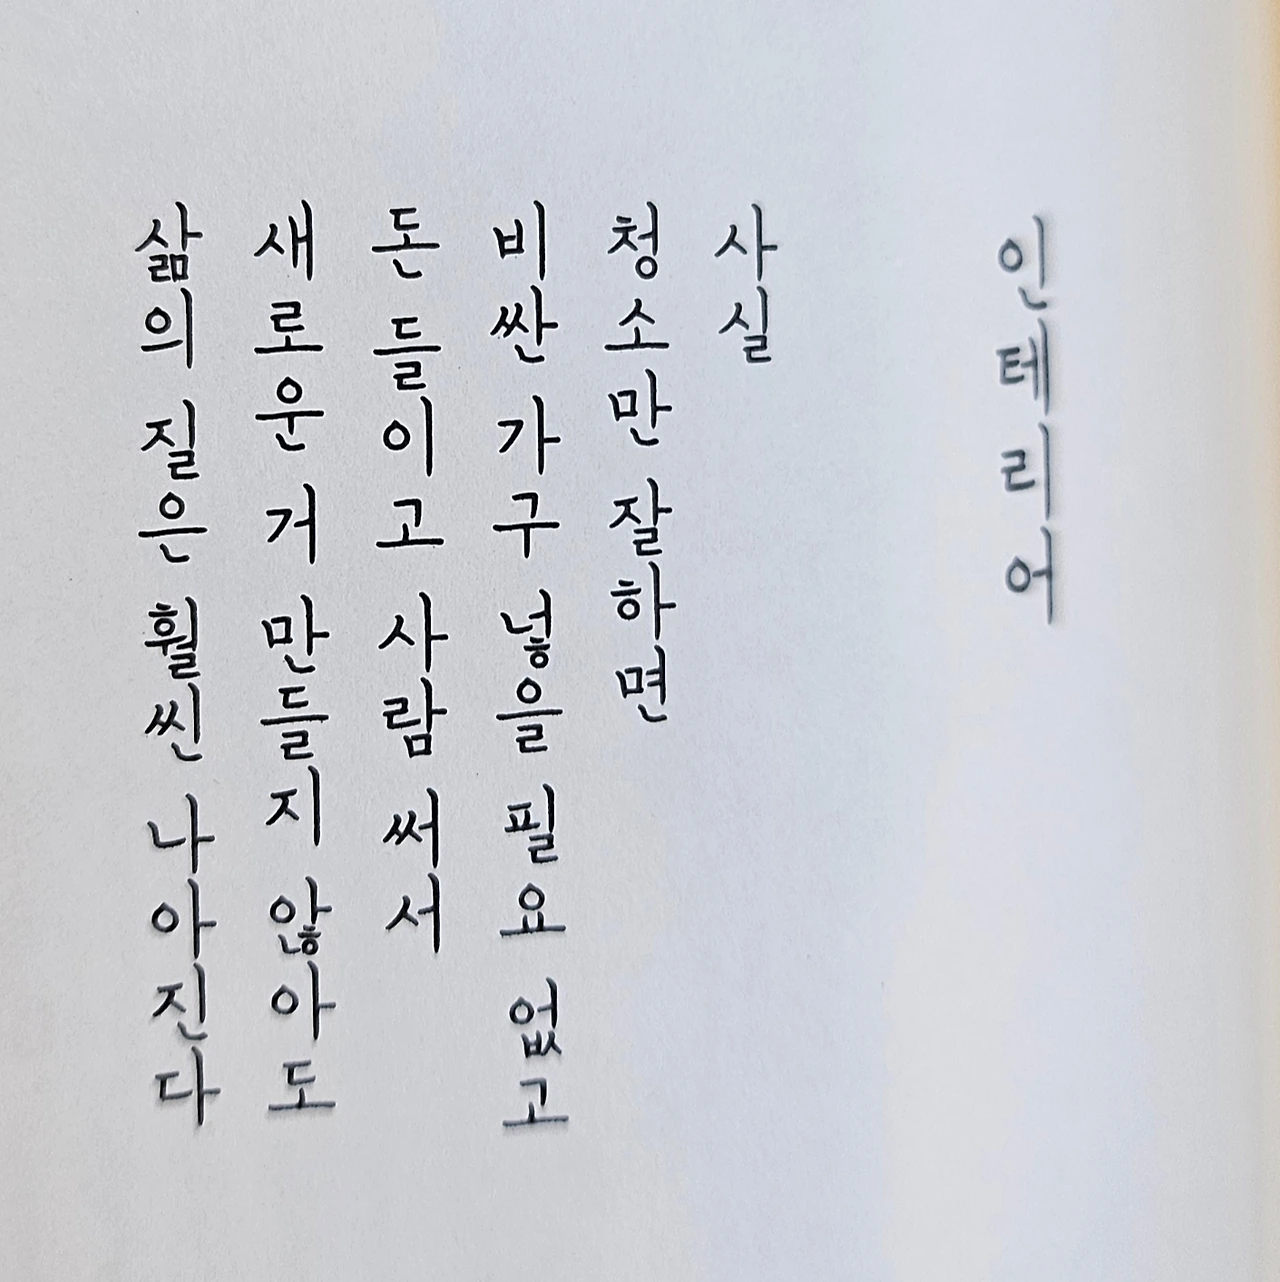 인테리어
사실
청소만 잘하면
비싼 가구 넣을 필요 없고
돈 들이고 사람 써서
새로운 거 만들지 않아도
삶의 질은 훨씬 나아진다